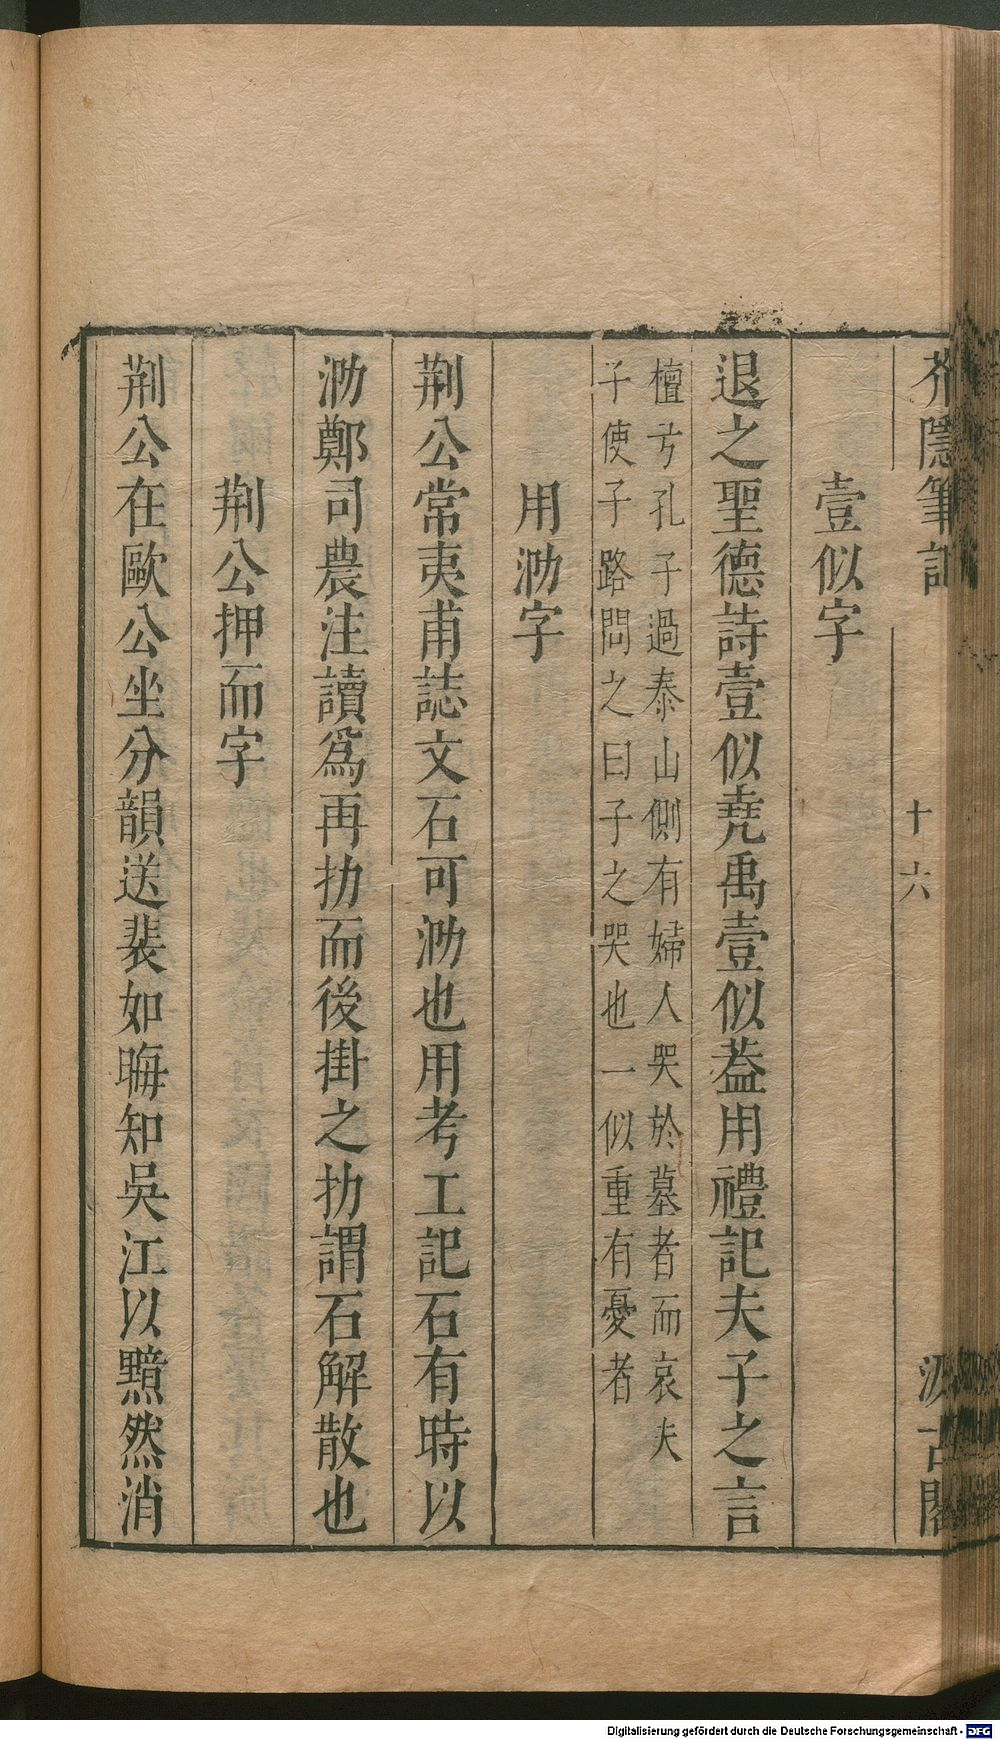 芥隱筆記
十六
汲古閣
壹似字
退之聖德詩壹似堯禹壹似葢用禮記夫子之言
檀弓孔子過泰山側有婦人哭於墓者而哀夫
子使子路問之曰子之哭也一似重有憂者
用泐字
荆公常夷甫誌文石可泐也用考工記石有時以
泐鄭司農注讀爲再扐而後掛之扐謂石解散也
荆公押而字
荆公在歐公坐分韻送裴如晦知吳江以黯然消
Digitalisierung gefördert durch die Deutsche Forschungsgemeinschaft - DFG